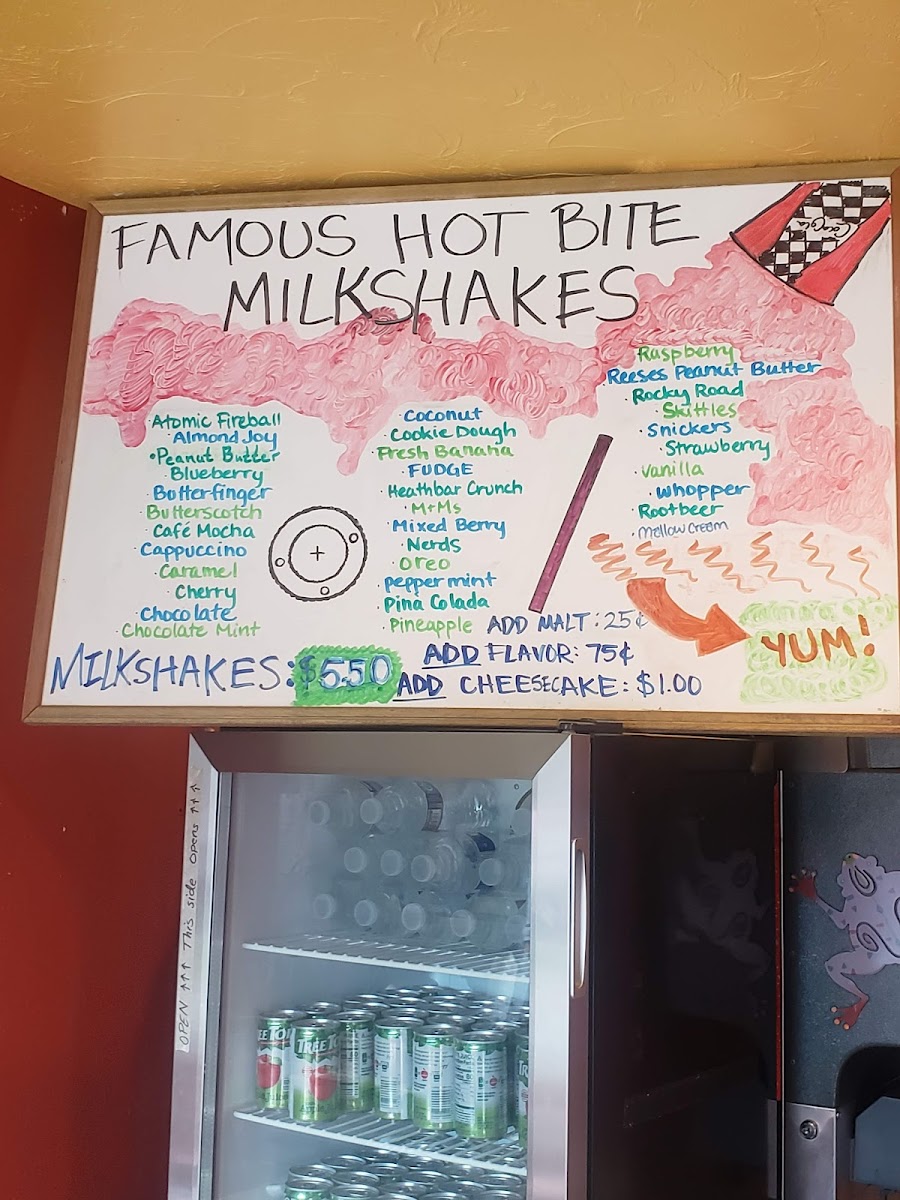 FAMOUS HOT BITE
MILKSHAKES
Coca-Cola
Atomic Fireball
Almond Joy
Peanut Butter
Blueberry
Butterfinger
Butterscotch
Café Mocha
Cappuccino
Caramel
Cherry
Chocolate
Chocolate Mint
Coconut
Cookie Dough
Fresh Banana
FUDGE
Heathbar Crunch
M+Ms
Mixed Berry
Nerds
Oreo
peppermint
Pina Colada
Pineapple
Raspberry
Reeses Peanut Butter
Rocky Road
Skittles
Snickers
Strawberry
Vanilla
Whopper
Rootbeer
Mellow Cream
MILKSHAKES: $5.50
ADD MALT: 25¢
ADD FLAVOR: 75¢
ADD CHEESECAKE: $1.00
YUM!
OPEN ↑↑↑ This side opens ↑↑↑
TREE TO